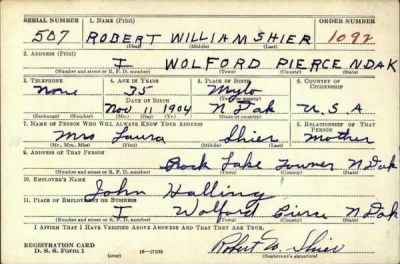 SERIAL NUMBER 1. NAME (Print) ORDER NUMBER
507 ROBERT WILLIAM SHIER 1092
(First) (Middle) (Last)
2. ADDRESS (Print)
I WOLFORD PIERCE N DAK
(Number and street or R. F. D. number) (Town) (County) (State)
3. TELEPHONE 4. AGE IN YEARS 5. PLACE OF BIRTH 6. COUNTRY OF CITIZENSHIP
None 35 Mylo
DATE OF BIRTH (Town or county)
Nov. 11 1904 N Dak U.S.A
(Exchange) (Number) (Mo.) (Day) (Yr.) (State or country)
7. NAME OF PERSON WHO WILL ALWAYS KNOW YOUR ADDRESS 8. RELATIONSHIP OF THAT PERSON
Mrs Laura Shier Mother
(Mr., Mrs., Miss) (First) (Middle) (Last)
9. ADDRESS OF THAT PERSON
Rock Lake Towner N Dak
(Number and street or R. F. D. number) (Town) (County) (State)
10. EMPLOYER'S NAME
John Halling
11. PLACE OF EMPLOYMENT OR BUSINESS
I Wolford Pierce N Dak
(Number and street or R. F. D. number) (Town) (County) (State)
I AFFIRM THAT I HAVE VERIFIED ABOVE ANSWERS AND THAT THEY ARE TRUE.
REGISTRATION CARD
D. S. S. Form 1 (over) Robert W. Shier
(Registrant's signature)